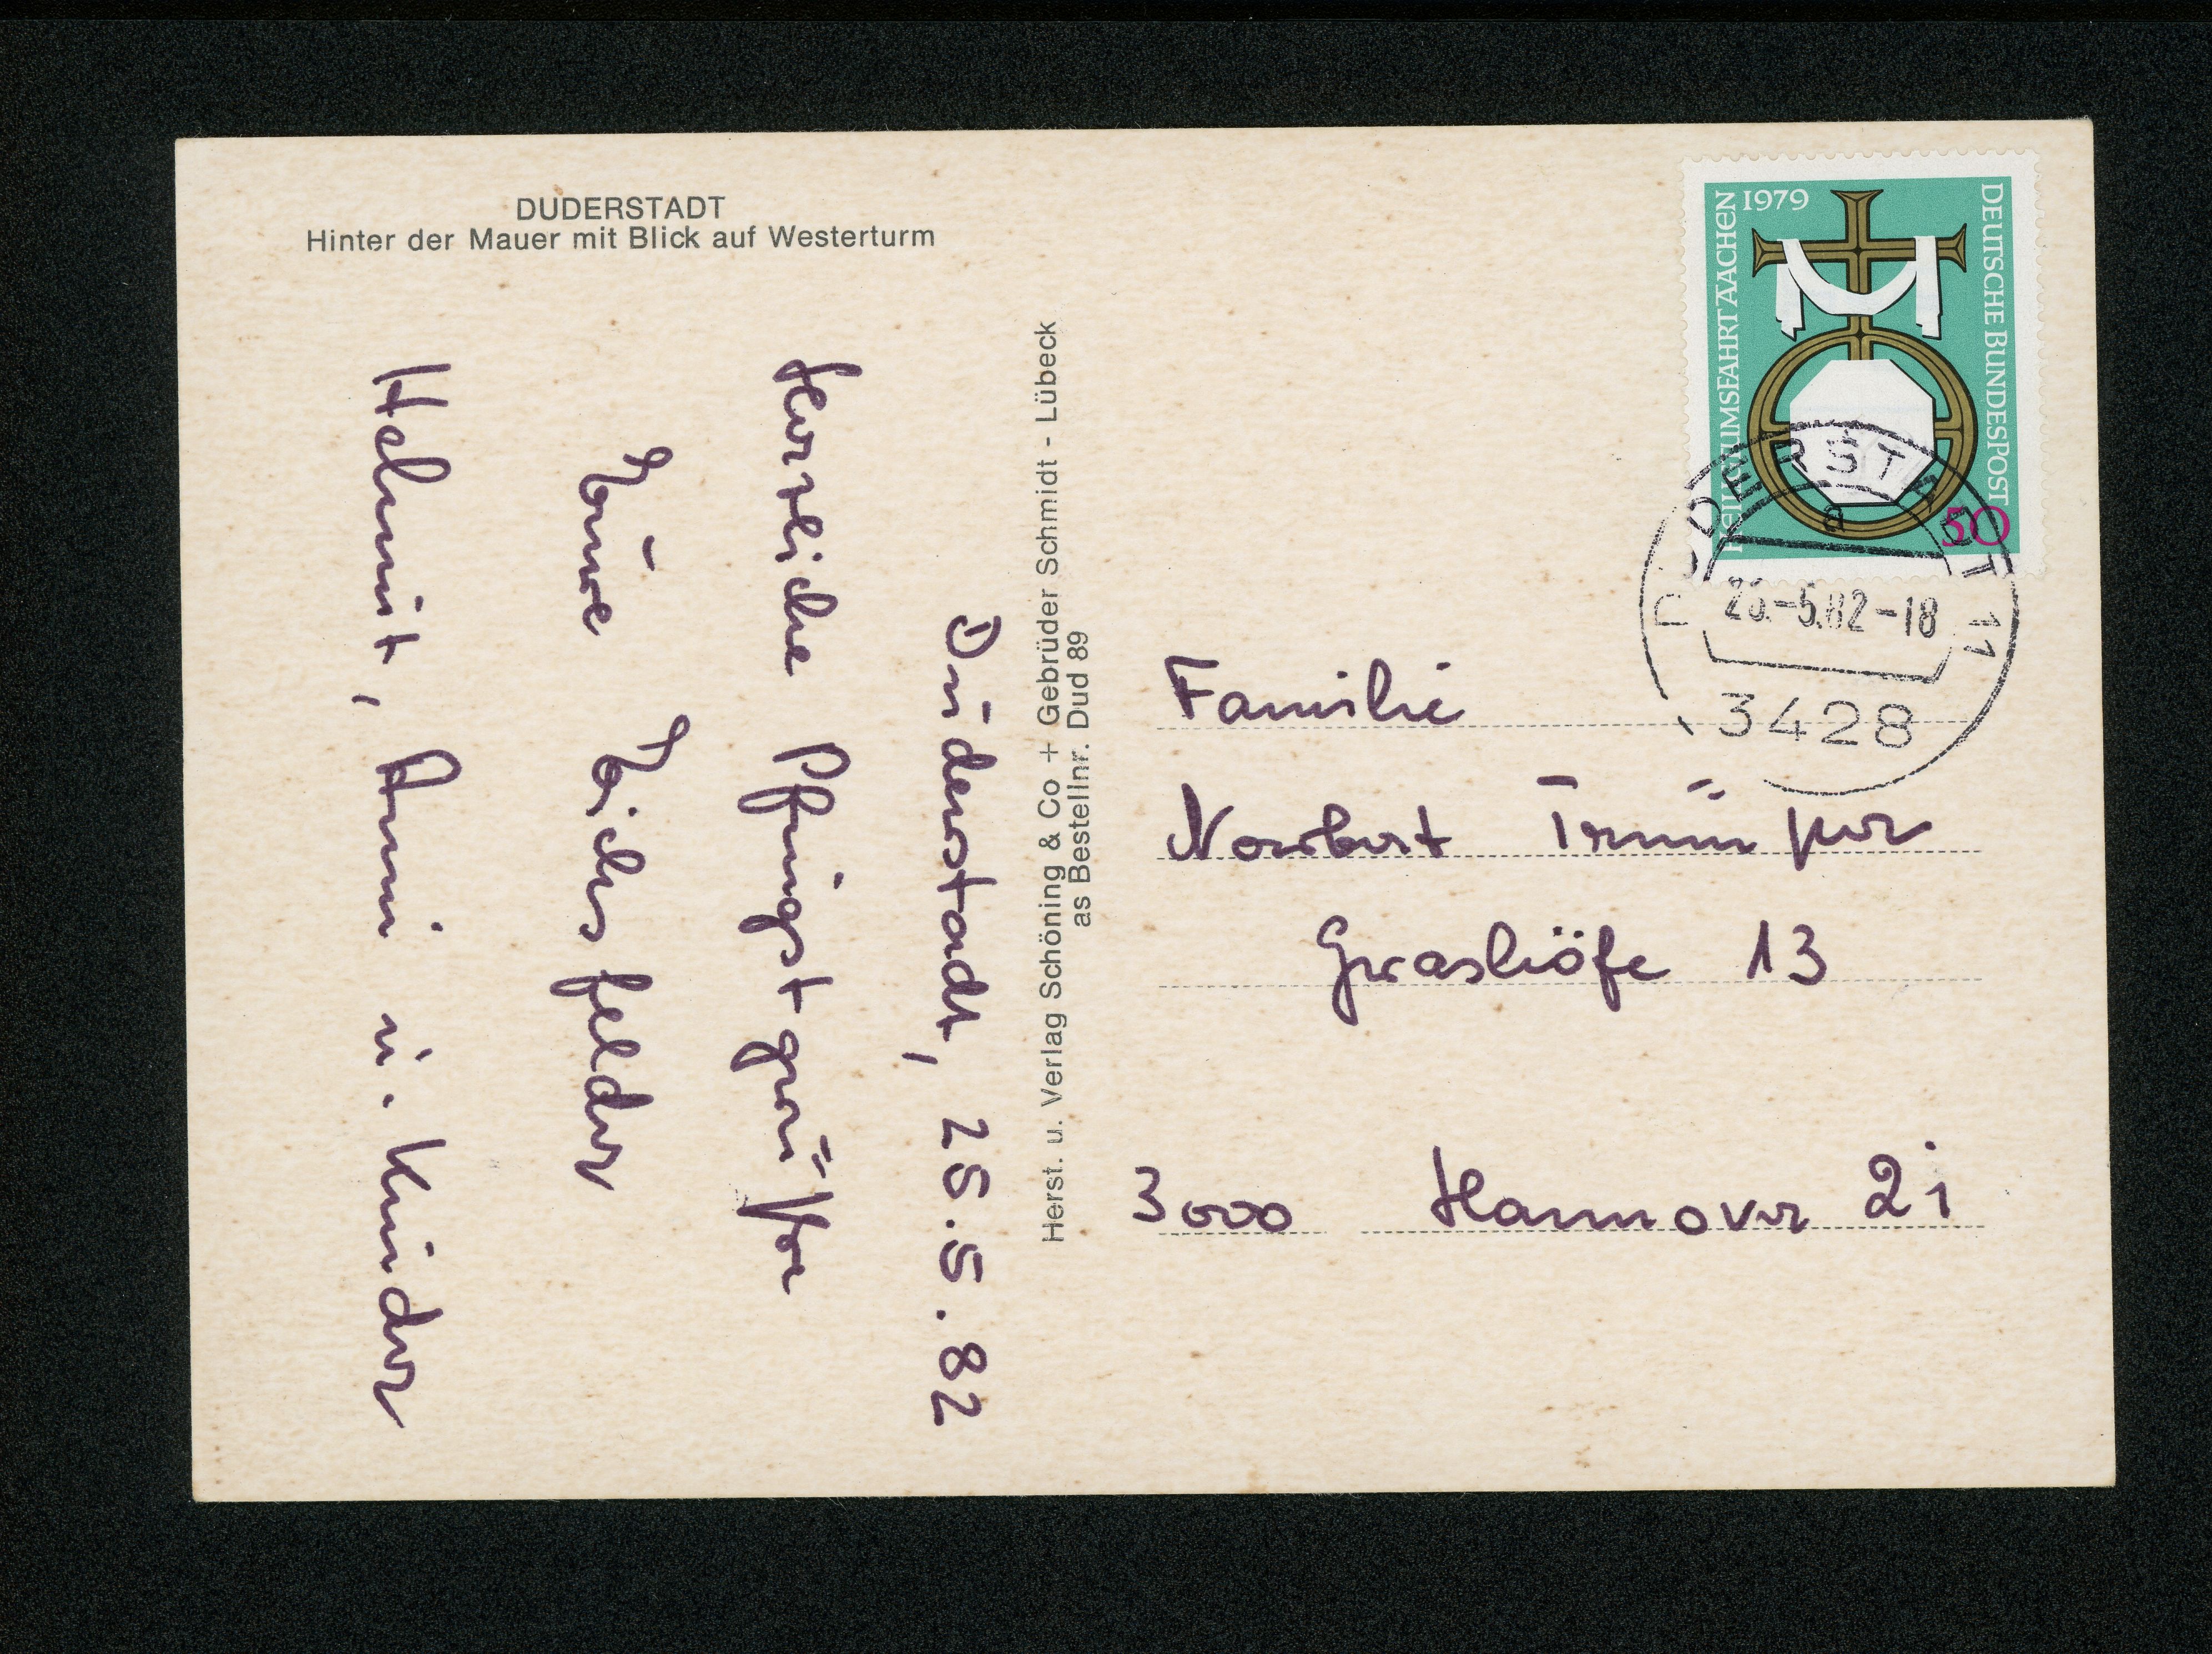 DUDERSTADT
Hinter der Mauer mit Blick auf Westerturm
Duderstadt, 25.5.82
Herzliche Pfingstgrüße
Eure Eichsfelder
Helmut, Anni u. Kinder
Herst. u. Verlag Schöning & Co + Gebrüder Schmidt - Lübeck
as Bestellnr. Dud 89
HEILIGTUMSFAHRT AACHEN 1979
DEUTSCHE BUNDESPOST
50
DUDERSTADT 11
a
-5.82-18
3428
Familie
Norbert Trümper
Grashöfe 13
3000 Hannover 21